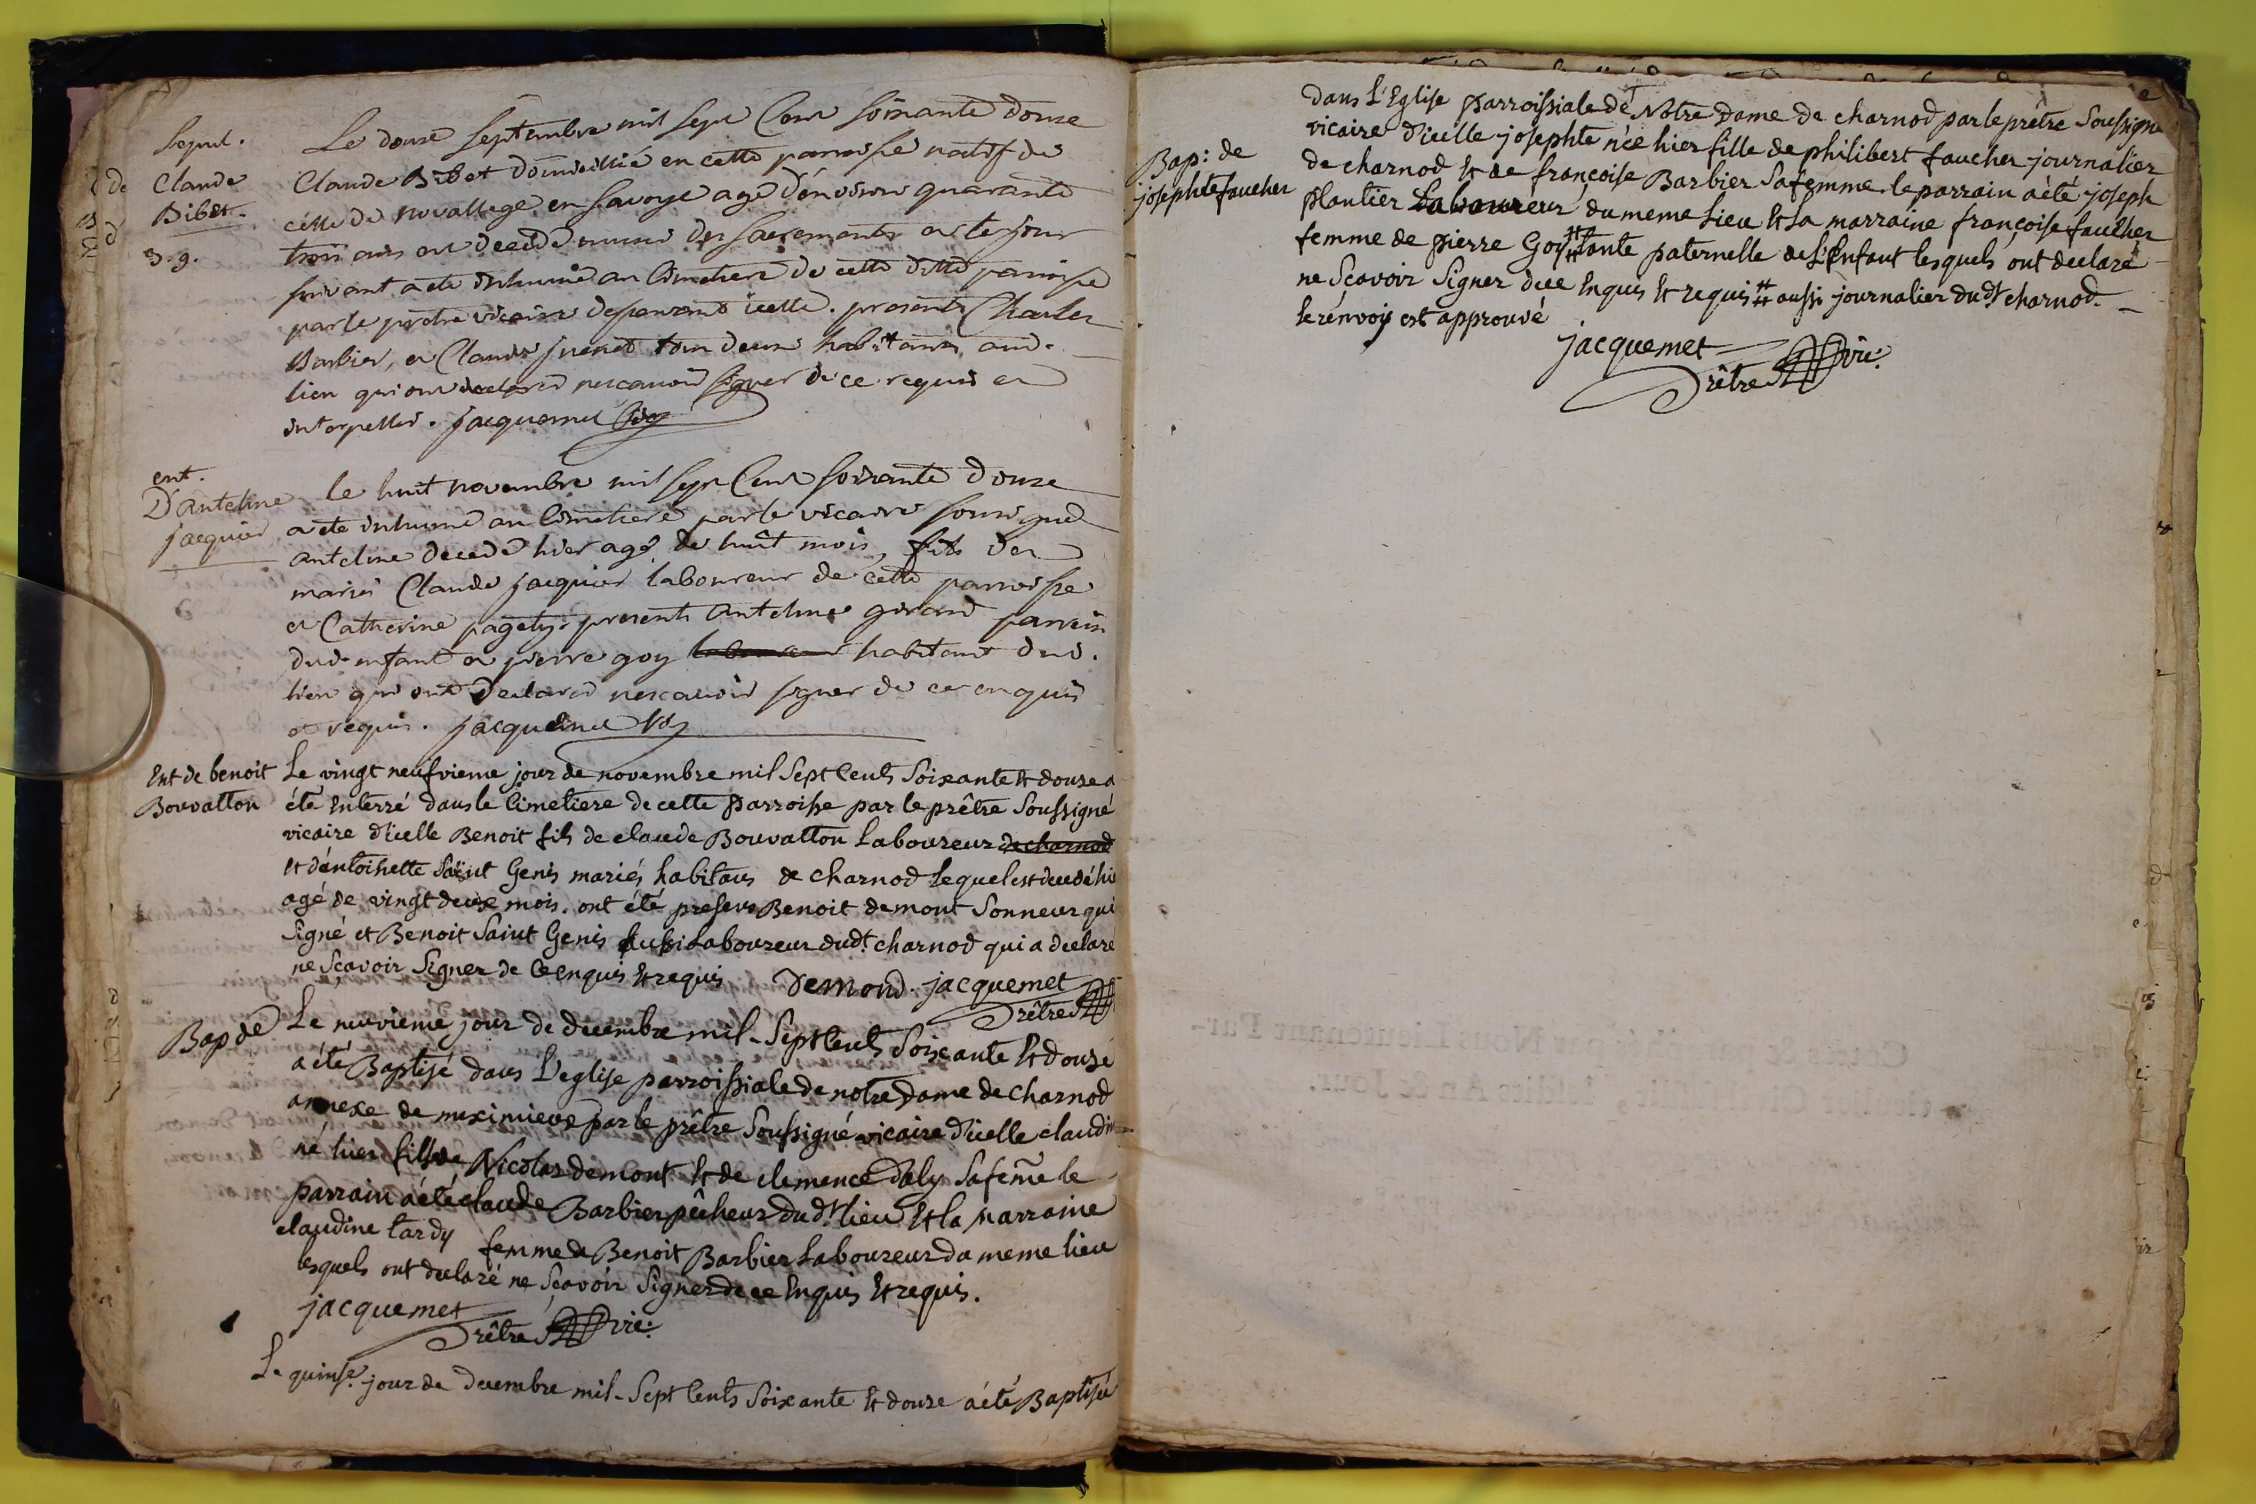 Sepul.
Claude
Bibet.
3. g.
Le douze septembre mil sept Cent soixante douze
Claude Bibet domicillié en cette parroisse natif de
celle de novallege en savoye agé d'environ quarante
trois ans est decedé muni des sacrements et le jour
suivant a ete inhumé au Cimetiere de cette ditte parroisse
par le pretre vicaire desservant icelle. presents Charles
Barbier, et Claude tous deux habitants aud.
lieu qui ont declaré ne scavoir signer de ce requis et
interpellés. jacquemet
ent.
D'Antelme
jacquier
le huit novembre mil sept Cent soixante douze
a ete inhumé au Cimetiere par le vicaire soussigné
antelme decedé hier agé de huit mois, fils des
mariés Claude jacquier laboureur de cette parroisse
et Catherine pagety. presents antelme girard parrein
dud. enfant et pierre goy habitant dud.
lieu qui ont declaré ne scavoir signer de ce enquis
et requis. jacquemet
Ent de benoit
Bouvatton
Le vingt neufvieme jour de novembre mil Sept Cents Soixante et douze a
été Enterré dans le Cimetiere de cette Parroisse par le prêtre Soussigné
vicaire d'icelle Benoit fils de claude Bouvatton Laboureur de charnod
et d'antoinette Saint Genis mariés habitans de charnod lequel est decedé hie
agé de vingt deux mois. ont été presens Benoit demont Sonneur qui
Signé et Benoit Saint Genis aussi Laboureur dudt. charnod qui a declaré
ne Sçavoir Signer de Ce enquis et requis Demond. jacquemet
Prêtre
Bap de
Le neuvieme jour de decembre mil-Sept Cents Soixante et douze
a été Baptisé dans L'eglise parroissiale de notre Dame de charnod
annexe de meximieux par le prêtre Soussigné vicaire d'icelle claudi
né hier fils de Nicolas demont et de clemence Daly Sa feme le
parrain a été claude Barbier pêcheur dudt. lieu et la marraine
claudine tardy femme de Benoit Barbier Laboureur du meme lieu
lesquels ont declaré ne Sçavoir Signer de ce Enquis et requis.
jacquemet
Prêtre vic:
Le quinse. jour de decembre mil-Sept Cents Soixante et douze a été Baptisée
Bap: de
josephte faucher
dans L'Eglise Parroissiale de Notre Dame de charnod par le prêtre Soussigné
vicaire d'icelle josephte née hier fille de philibert faucher journalier
de charnod et de françoise Barbier Sa femme. le parrain a été joseph
Plantier Laboureur du meme Lieu et la marraine françoise faucher
femme de pierre Goy ⌗ tante paternelle de L'Enfant lesquels ont declaré
ne Sçavoir Signer de ce Enquis et requis ⌗ aussi journalier dudt charnod.
le rénvoy est approuvé
jacquemet
Prêtre vic: